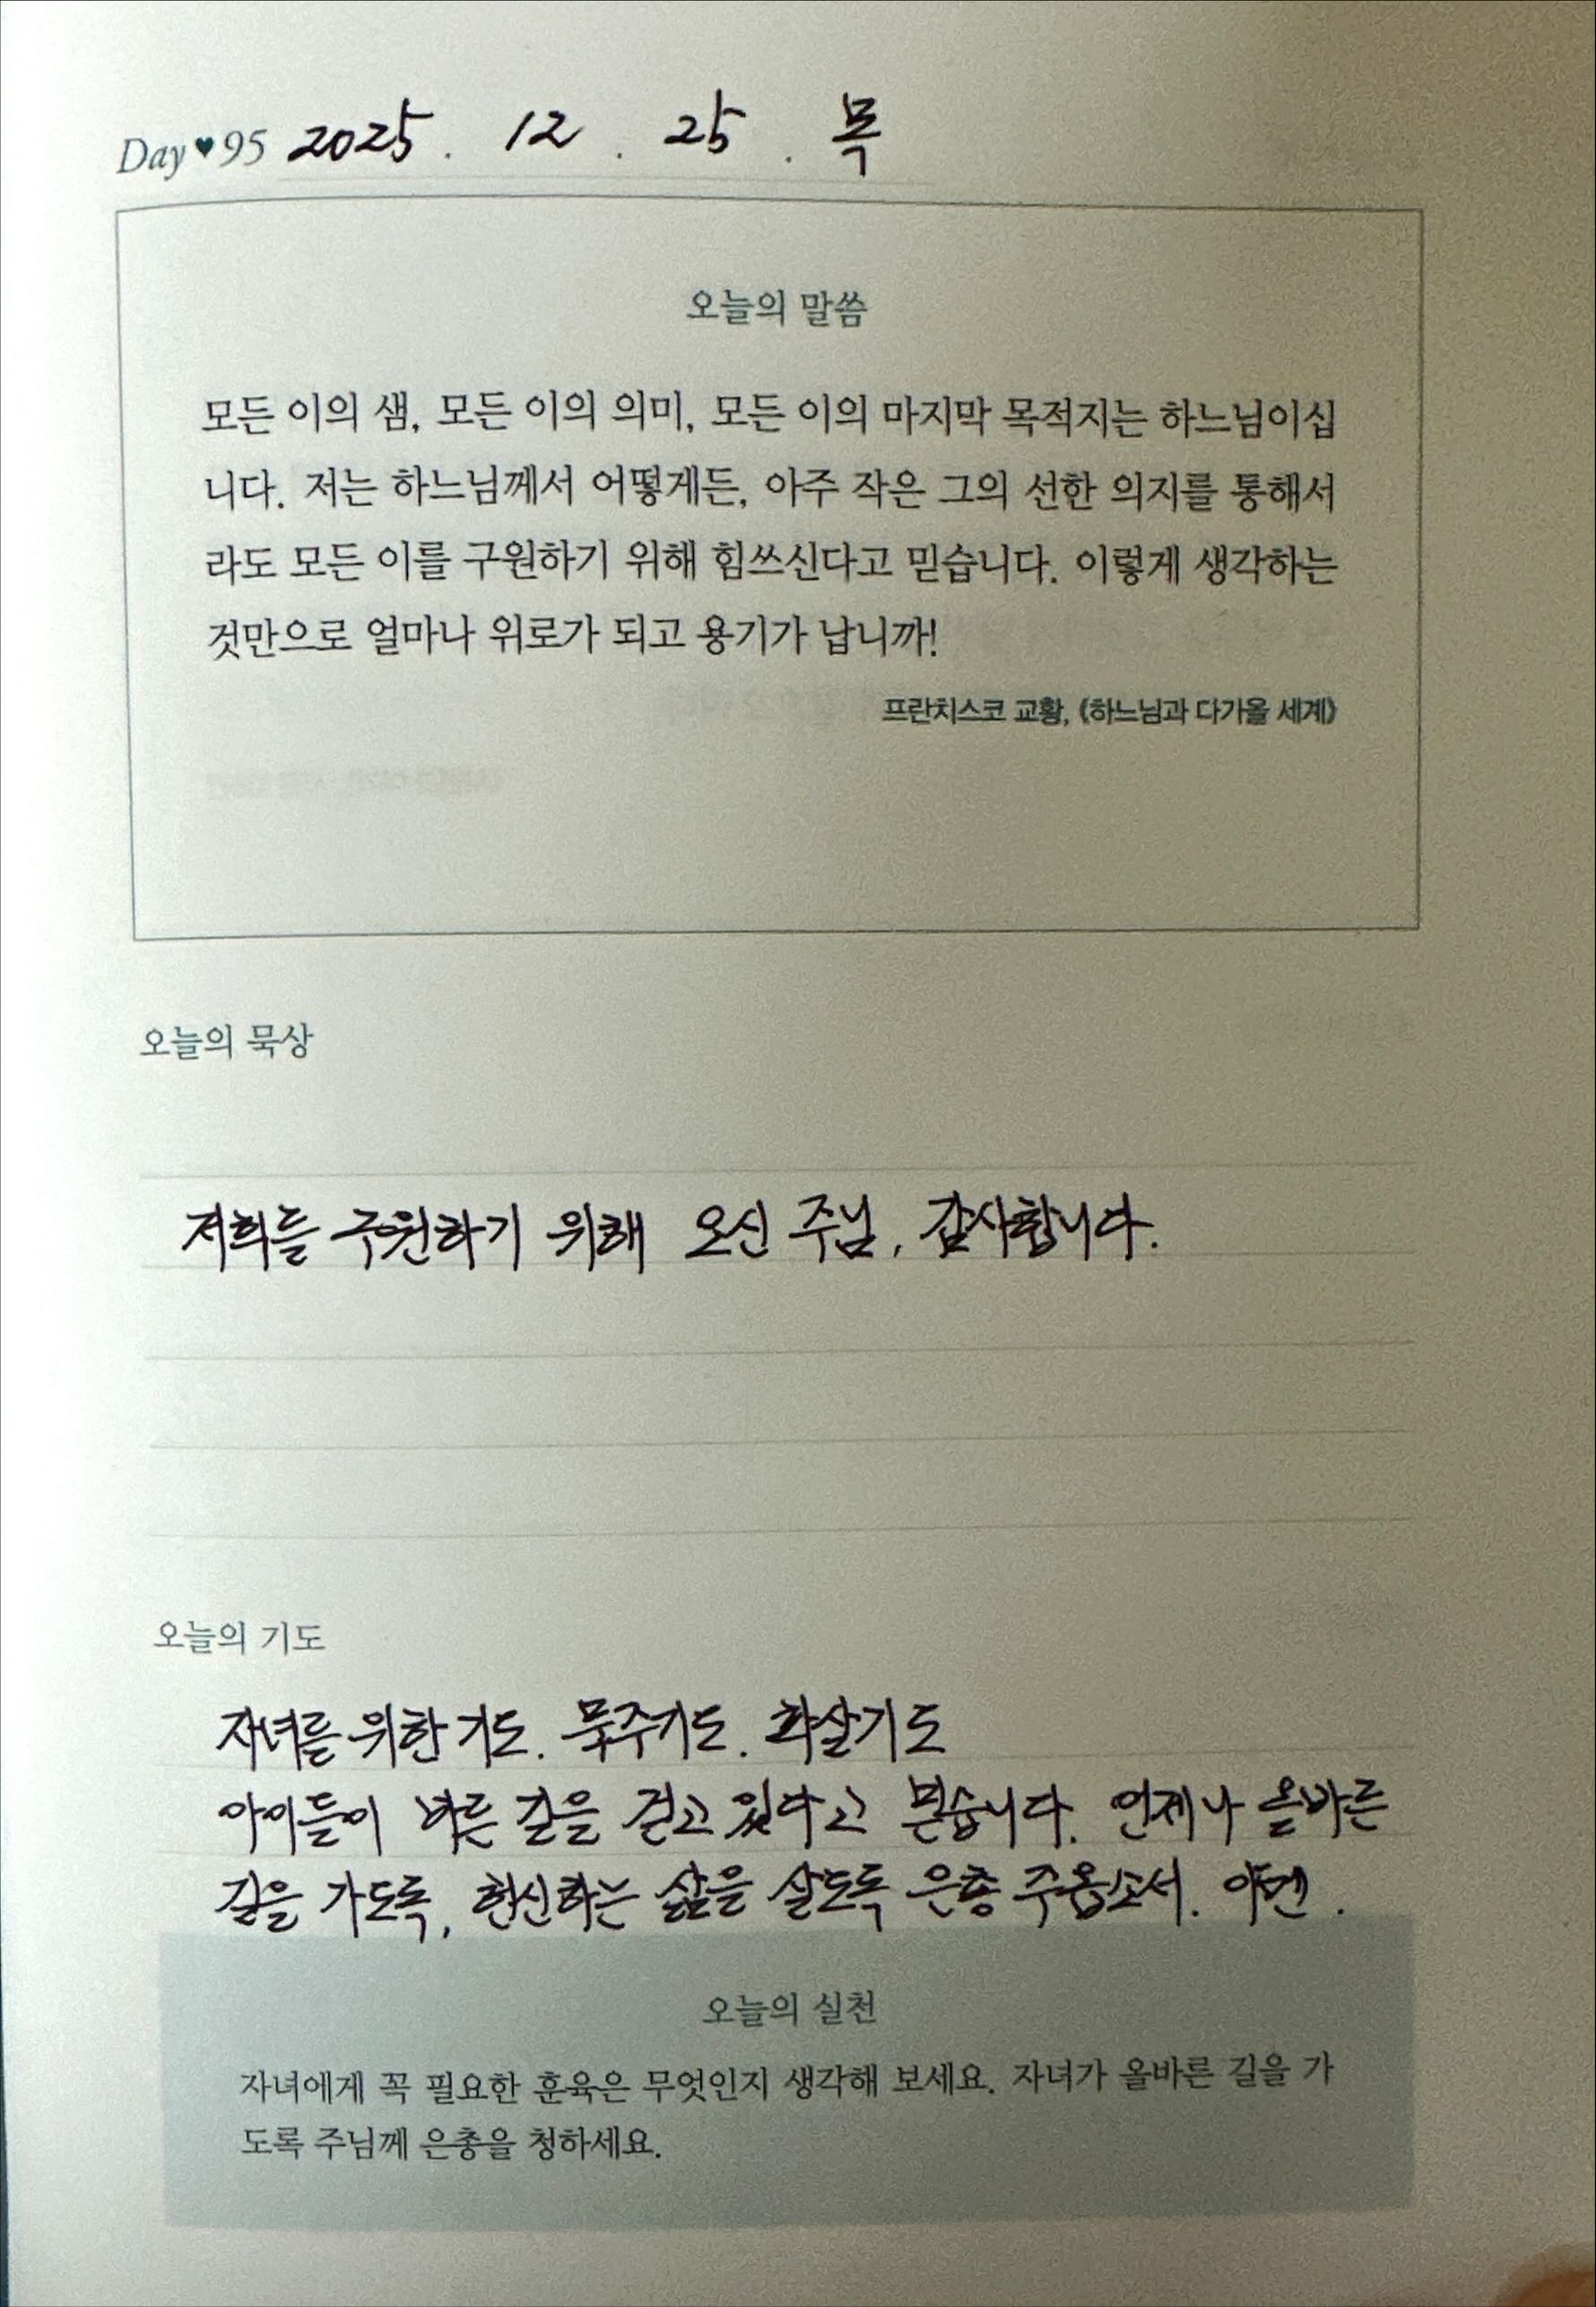 Day♥95 2025 . 12 . 25 . 목
오늘의 말씀
모든 이의 샘, 모든 이의 의미, 모든 이의 마지막 목적지는 하느님이십
니다. 저는 하느님께서 어떻게든, 아주 작은 그의 선한 의지를 통해서
라도 모든 이를 구원하기 위해 힘쓰신다고 믿습니다. 이렇게 생각하는
것만으로 얼마나 위로가 되고 용기가 납니까!
프란치스코 교황, 《하느님과 다가올 세계》
오늘의 묵상
저희를 구원하기 위해 오신 주님, 감사합니다.
오늘의 기도
자녀를 위한 기도. 묵주기도. 화살기도
아이들이 바른 길을 걷고 있다고 믿습니다. 언제나 올바른
길을 가도록, 헌신하는 삶을 살도록 은총 주옵소서. 아멘.
오늘의 실천
자녀에게 꼭 필요한 훈육은 무엇인지 생각해 보세요. 자녀가 올바른 길을 가
도록 주님께 은총을 청하세요.